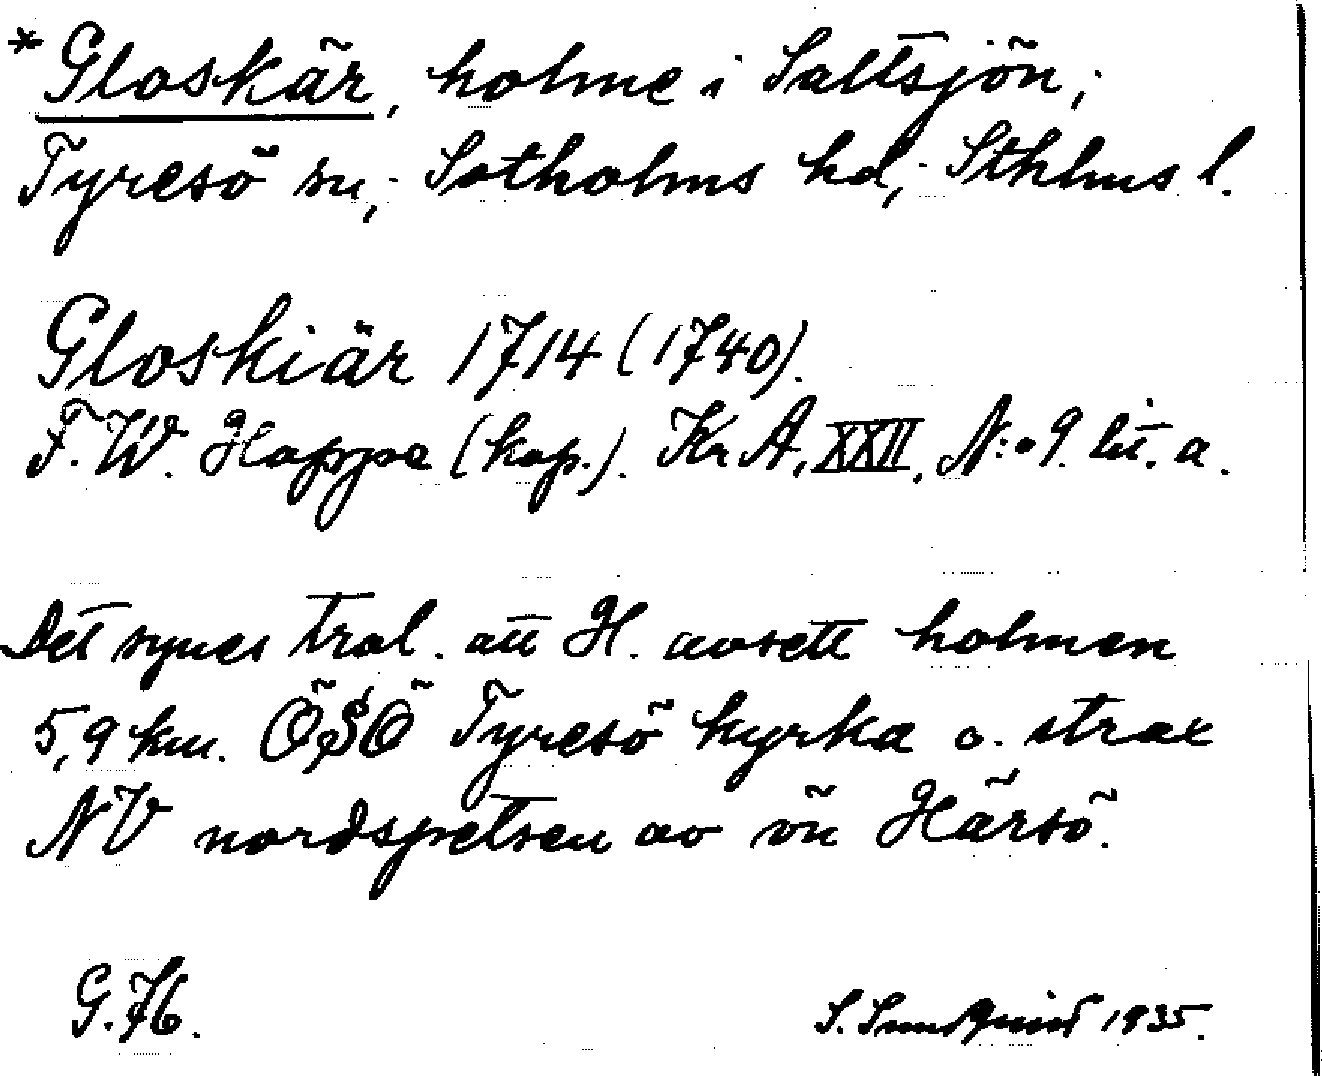 *Gloskär, holme i Saltsjön;
Tyresö sn, Sotholms hd, Sthlms l.
Gloskiär 1714 (1740).
F. W. Hoppe (kop.). Kr A, XXII, N:o 9. lit. a.
Det synes trol. att H. avsett holmen
5,9 km. ÖSÖ Tyresö kyrka o. strax
NV nordspetsen av ön Härsö.
G. H.
S. Sundquist 1935.